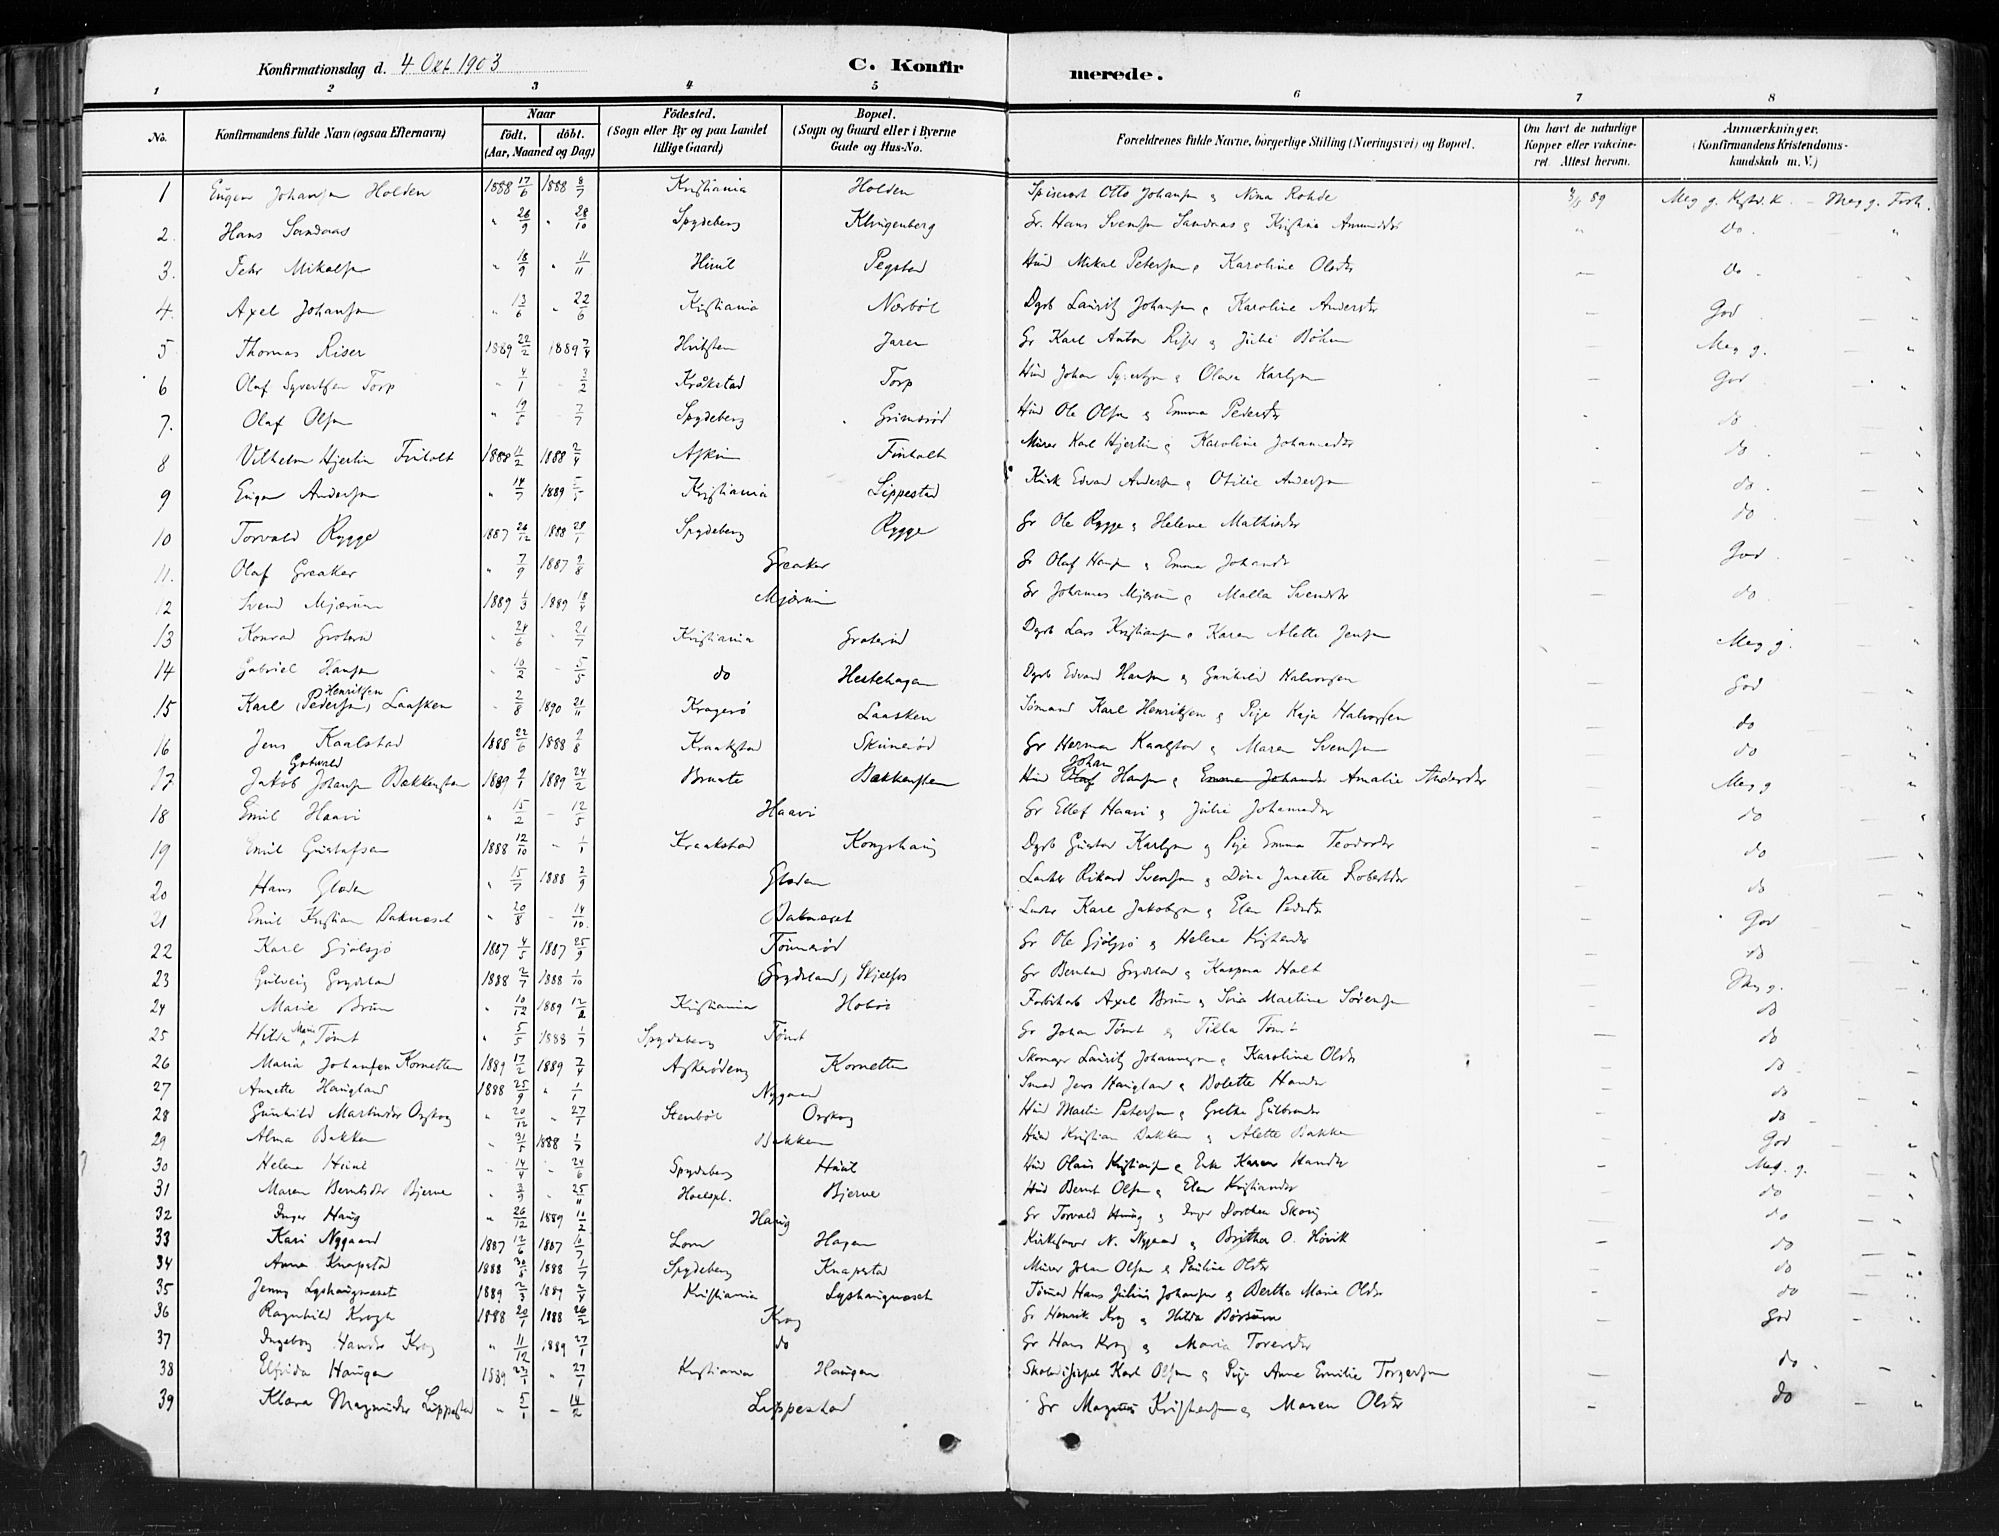 Konfirmationsdag d. 4 Okt 1903 C. Konfirmerede.
1 2 3 4 5 6 7 8
No. Konfirmandens fulde Navn (ogsaa Efternavn) Naar födt, döbt. (Aar, Maaned og Dag) Födested. (Sogn eller By og paa Landet tillige Gaard) Bopæl. (Sogn og Gaard eller i Byerne Gade og Hus-No. Forældrenes fulde Navne, borgerlige Stilling (Næringsvei) og Bopæl. Om havt de naturlige Kopper eller vakcineret. Attest herom. Anmærkninger. (Konfirmandens Kristendomskundskab m. V.)
1 Eugen Johansen Holden 1888 17/6 1888 8/7 Kristiania Holden Otto Johansen & Nina Rohde 89 Meg g. - Meg g.
2. Hans Sandnæs " 26/9 " 28/10 Spydeberg Klingenberg Gr. Hans Svensen Sandnæs & Kristine do. "
3. Peder Mikalsen " 18/9 " 11/11 Huul Pegstad Hmd Mikal Petersen & Karoline Olsdtr — do "
4. Axel Johansen " 13/6 " 22/6 Kristiania Nærböl Dgrb Lauritz Johansen & Karoline Andersdtr — God "
5 Thomas Riser 1889 22/2 1889 7/4 Hvitsten Jaren Gr Karl Anton Riser & Julie Böhm — Meg g. "
6 Olaf Syvertsen Torp " 4/1 - 3/2 Kråkstad Torp Hmd Johan Syvertsen & Olava Karlsen — God "
7. Olaf Olsen " 19/5 - 7/7 Spydeberg Grimsrød Hmd Ole Olsen & Emma Pedersdtr do "
8 Vilhelm Hjerlin Finholt 1888 11/2 1888 2/4 Askim Finholt Murer Karl Hjerlin & Karoline Johannesdtr do "
9 Eugen Andersen " 14/7 1889 5/5 Kristiania Lippestad Edvard Andersen & Otilie Andersen — do. "
10 Torvald Rygge 1887 26/12 1888 29/1 Spydeberg Rygge Gr Ole Rygge & Helene Mathisdtr — do "
11. Olaf Greaker " 7/9 1887 9/8 Greaker Gr Olaf Hansen & Emma Johansdtr — God "
12 Svend Mjærum 1889 1/3 1889 18/4 Mjærum Gr Johannes Mjærum & Malla Svendsdtr — do. "
13 Konrad " 24/6 - 21/7 Kristiania Dgrb Lars Kristiansen & Karen Alette Jensen — Meg g. "
14 Gabriel Hansen " 10/2 - 5/5 do Hestehagen Dgrb Edvard Hansen & Gunhild Halvorsen — God "
15 Karl (Pedersen) Henriksen Laasken - 2/8 1890 21/11 Kragerö Laasken Sömand Karl Henriksen & Pige Kaja Halvorsen — do "
16 Jens Kaalstad 1888 22/6 1888 9/8 Kraakstad Skunerød Gr Herman Kaalstad & Maren Svensen — do "
17. Jakob Gotvald Johansen Bækkensten 1889 9/1 1889 24/2 Braate Bækkensten Hmd Olaf Johan Hansen & Emma Johansdtr Amalie Andersdtr — Meg g "
18 Emil Haavi " 15/2 - 12/5 Haavi Gr Ellef Haavi & Julie Johannesdtr — do "
19 Emil Gustafsen 1888 12/10 - 1/1 Kraakstad Kongshaug Dgrb Gustav Karlsen & Pige Emma Teodorsdtr — do "
20 Hans Gladen " 15/7 1888 2/9 Gladen Rikard Svensen & Dina Janette Robertsdtr — do "
21 Emil Kristian " 20/8 - 14/10. Karl Jakobsen & Elen Pedersdtr — God "
22 Karl Gjölsjö 1887 4/5 1887 25/9 Tönnerød Gr Ole Gjölsjö & Helene — do "
23 Gulveig Grydeland 1888 2/7 1888 1/10 Grydeland, Skjelfos Gr Bernhard Grydeland & Kaspara Holt — Meg g. "
24 Marie Brun " 10/12 1889 12/2 Kristiania Hobøe Axel Brun & Martine Sörensen — do "
25 Hilda Marie Tömt " 5/5 1888 1/7 Spydeberg Tömt Gr Johan Tömt & Tilla Tömt — do "
26 Maria Johansen Kornetten 1889 17/2 1889 7/4 Kornetten Skomager Lauritz Johannesen & Karoline Olsdtr — do "
27 Annette Haugland 1888 25/9 " 1/1 Nygaard Smed Jens Haugland & Bolette Hansdtr — do "
28 Gunhild Martinsdtr " 20/12 " 27/1 Stenböl Hmd Martin Petersen & Grethe Gulbrandsdtr — do "
29 Alma Bakken " 31/5 1888 1/7 Bakken Hmd Kristian Bakken & Alette Bakken — God "
30 Helene Huul " 14/4 - 24/6 Spydeberg Huul Hmd Olaus Kristiansen & Karen Hansdtr — Meg. g. "
31 Maren Berntsdtr Bjerve " 3/9 " 25/11 Bjerve Hmd Bernt Olsen & Elen Kristiansdtr — do "
32 Inger Haug " 26/12 1889 10/2 Haug Gr Torvald Haug & Inger Dorthea Skoug — do "
33 Kari Nygaard 1887 12/6 1887 10/7 Lom Hagen Kirkesanger N. Nygaard & Britha O. Hövik — do "
34 Anna Knapstad 1888 30/5 1888 1/7 Spydeberg Knapstad Murer Johan Olsen & Pauline Olsdtr — do "
35 Jenny Lyshaugnæset 1889 2/3 1889 2/4 Kristiania Lyshaugnæset Tömmrd Hans Julius Johansen & Berthe Marie Olsdtr — do "
36 Ragnhild Krogh 1888 20/1 1888 26/2 Krog Gr Henrik Krog & Hilda Börsum — God "
37 Ingeborg Hansdtr Krog " 11/12 1889 27/1 do Gr Hans Krog & Maria Torersdtr —
38 Elfrida Haugen 1889 23/1 " 27/1 Kristiania Haugen Karl Olsen & Pige Anne Emilie Torgersen — do. -
39 Klara Magnusdtr Lippestad " 5/1 - 14/2 Lippestad Gr Magnus Kristensen & Maren Olsdtr — do — "